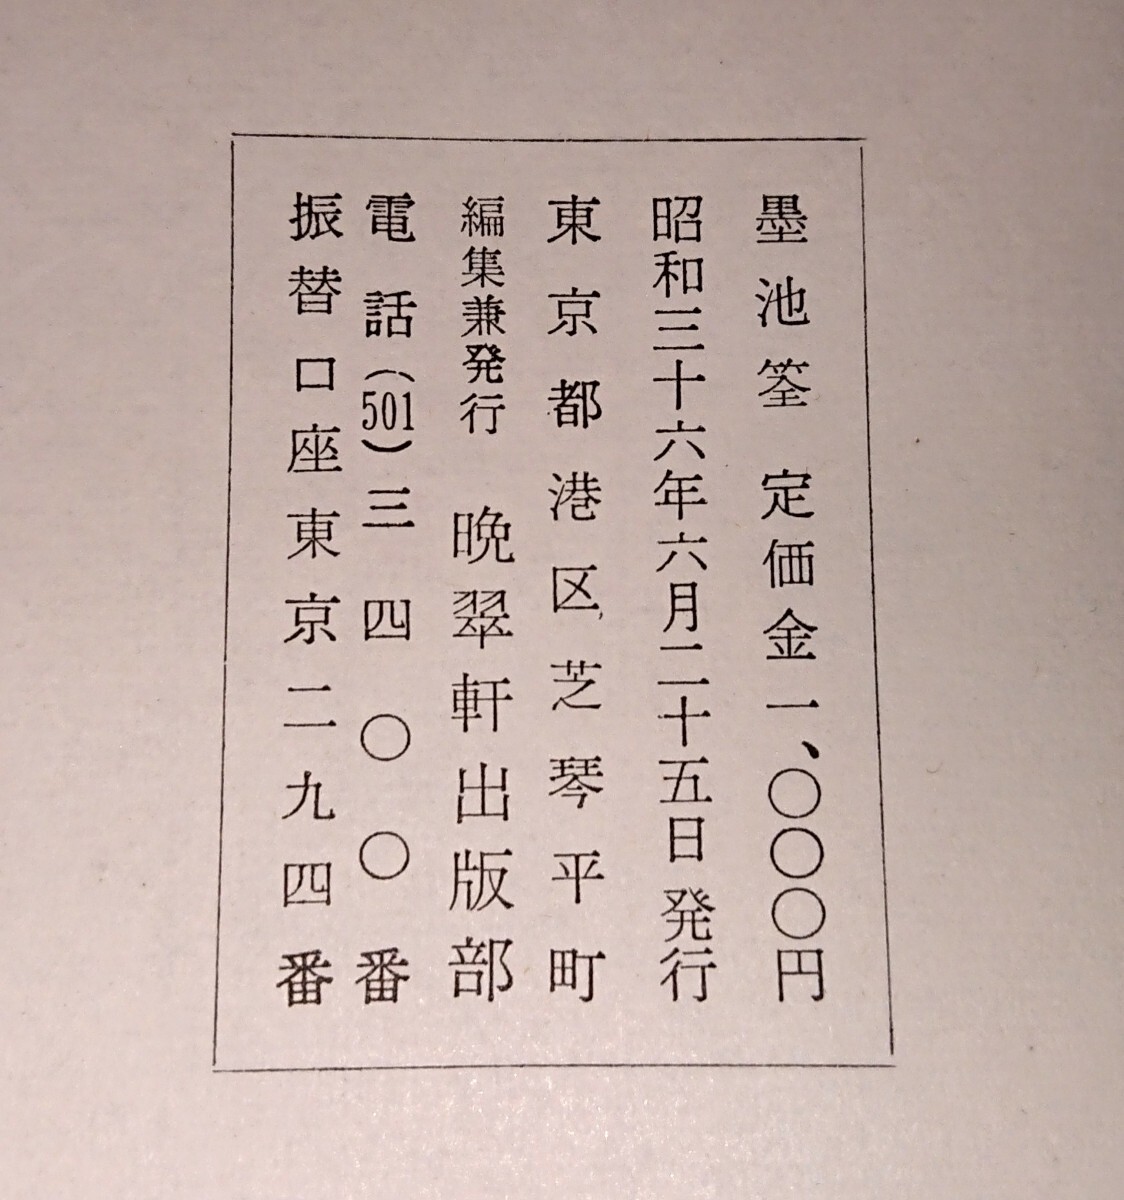 墨池筌　定価金一、〇〇〇円
昭和三十六年六月二十五日発行
東京都港区芝琴平町
編集兼発行　晩翠軒出版部
電話(501)三四〇〇番
振替口座東京二九四番